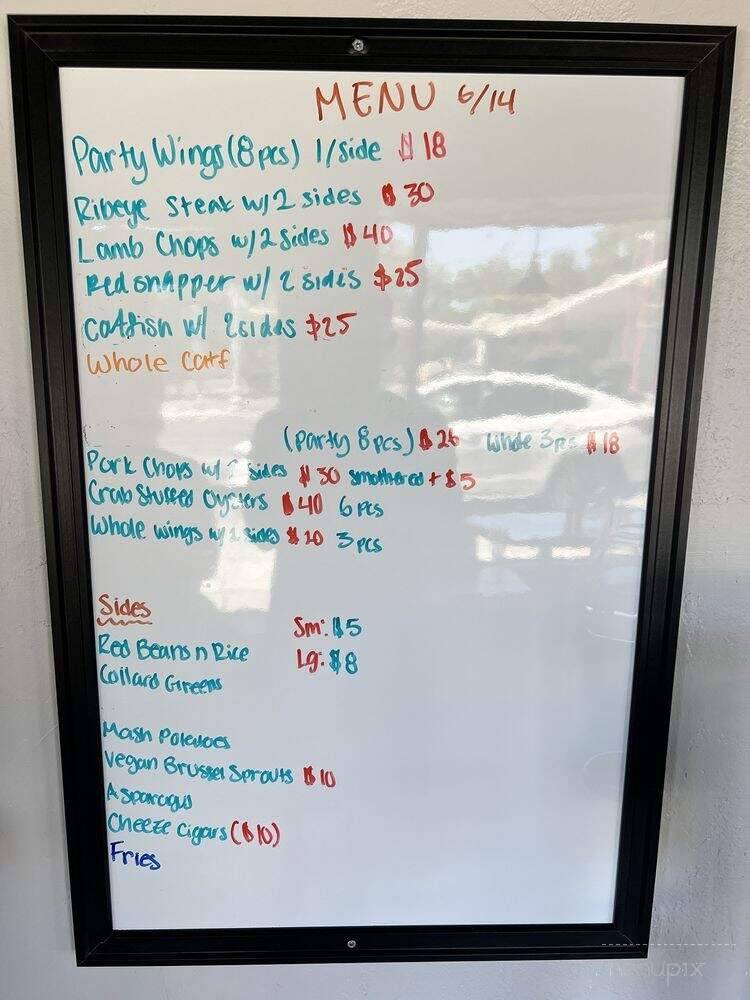 MENU 6/14
Party Wings (8pcs) 1/side $18
Ribeye Steak w/ 2 sides $30
Lamb Chops w/ 2 sides $40
Red snapper w/ 2 sides $25
catfish w/ 2 sides $25
Whole Catf
(party 8pcs) $26 Whole 3pcs $18
Pork Chops w/ 2 sides $30 smothered + $5
Crab Stuffed Oysters $40 6 pcs
Whole wings w/ sides $20 3 pcs
Sides
Sm: $5
Red Beans n Rice
Lg: $8
Collard Greens
Mash Potatoes
Vegan Brussel Sprouts $10
Asparagus
Cheeze Cigars ($10)
Fries
menupix